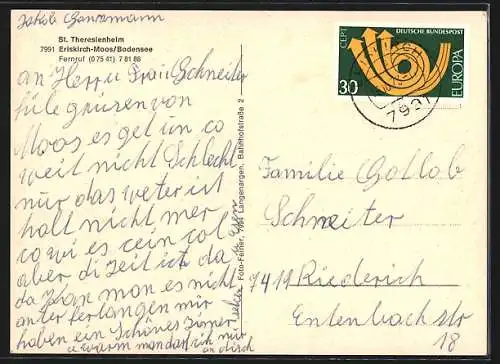 Jakob Ganzmann
St. Theresienheim
7991 Eriskirch-Moos/Bodensee
Fernruf (0 75 41) 7 81 86
an Herru Frau Schneiter
füle grüsen von
Moos es get un co
weit nicht Schlecht
nur das weter ist
halt nicht mer
co wi es cein sol
aber di Zeit ist da
da kan man es nicht
anter ferlangen mir
haben ein Schönes Zimer
warm man dar ich nur
an disch
Foto-Feiner, 7994 Langenargen, Bahnhofstraße 2
CEPT
DEUTSCHE BUNDESPOST
30
EUROPA
7991
Familie Gottlob
Schneiter
7419 Riederich
Entenbachstr
18